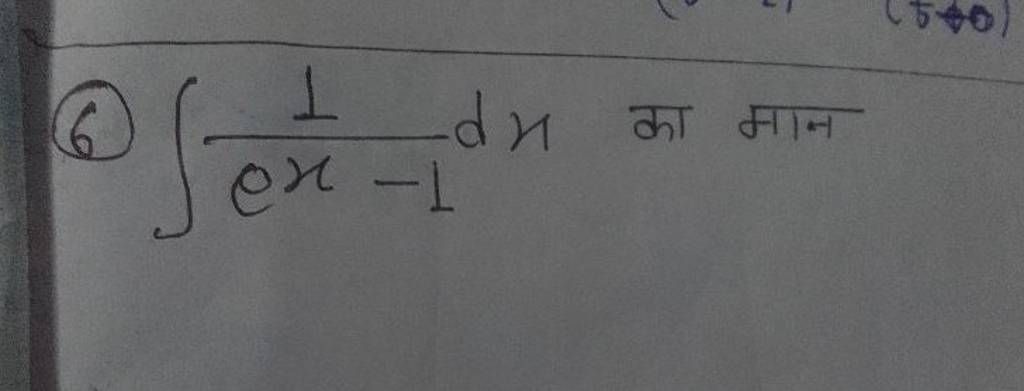 (5+0)
⑥ ∫ 1/(e^x - 1) dx का मान